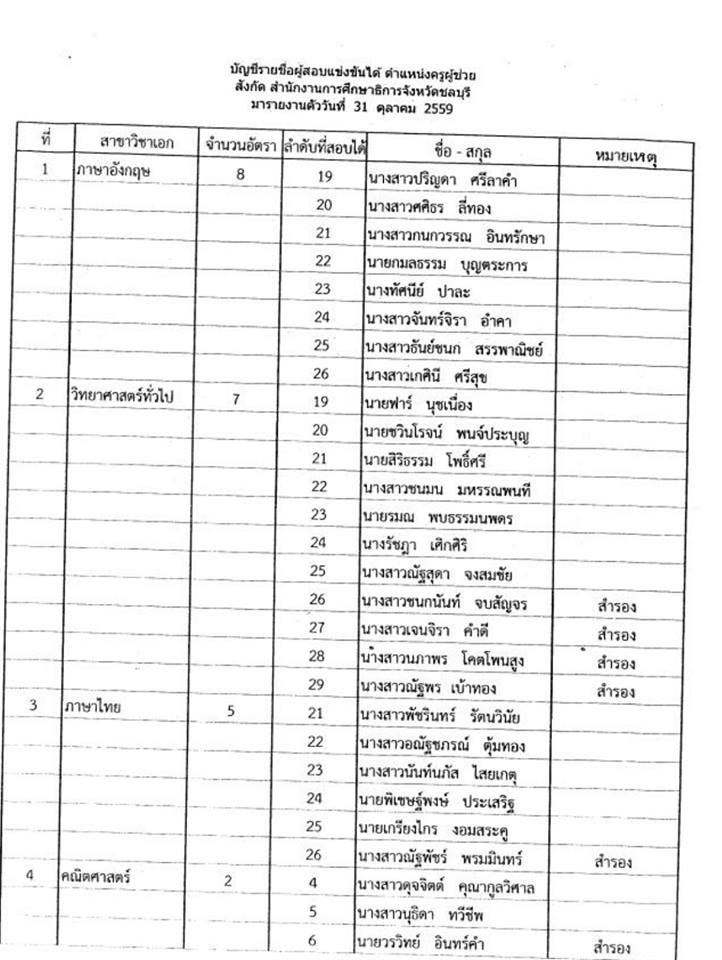 บัญชีรายชื่อผู้สอบแข่งขันได้ ตำแหน่งครูผู้ช่วย
สังกัด สำนักงานการศึกษาธิการจังหวัดชลบุรี
มารายงานตัววันที่ 31 ตุลาคม 2559
ที่ สาขาวิชาเอก จำนวนอัตรา ลำดับที่สอบได้ ชื่อ - สกุล หมายเหตุ
1 ภาษาอังกฤษ 8 19 นางสาวปริญดา ศรีลาคำ
20 นางสาวศศิธร ลี่ทอง
21 นางสาวกนกวรรณ อินทรักษา
22 นายกมลธรรม บุญตระการ
23 นางทัศนีย์ ปาละ
24 นางสาวจันทร์จิรา อำคา
25 นางสาวธันย์ชนก สรรพาณิชย์
26 นางสาวเกศินี ศรีสุข
2 วิทยาศาสตร์ทั่วไป 7 19 นายฟาร์ นุชเนื่อง
20 นายชวินโรจน์ พนจ์ประบุญ
21 นายสิริธรรม โพธิ์ศรี
22 นางสาวชนมน มหรรณพนที
23 นายรมณ พบธรรมนพดร
24 นางรัชฎา เศิกศิริ
25 นางสาวณัฐสุดา จงสมชัย
26 นางสาวชนกนันท์ จบสัญจร สำรอง
27 นางสาวเจนจิรา คำดี สำรอง
28 นางสาวนภาพร โคตโพนสูง สำรอง
29 นางสาวณัฐพร เบ้าทอง สำรอง
3 ภาษาไทย 5 21 นางสาวพัชรินทร์ รัตนวินัย
22 นางสาวอณัฐชภรณ์ ตุ้มทอง
23 นางสาวนันท์นภัส ไสยเกตุ
24 นายพิเชษฐ์พงษ์ ประเสริฐ
25 นายเกรียงไกร งอมสระคู
26 นางสาวณัฐพัชร์ พรมมินทร์ สำรอง
4 คณิตศาสตร์ 2 4 นางสาวดุจจิตต์ คุณากูลวิศาล
5 นางสาวนุธิดา ทวีชีพ
6 นายวรวิทย์ อินทร์คำ สำรอง